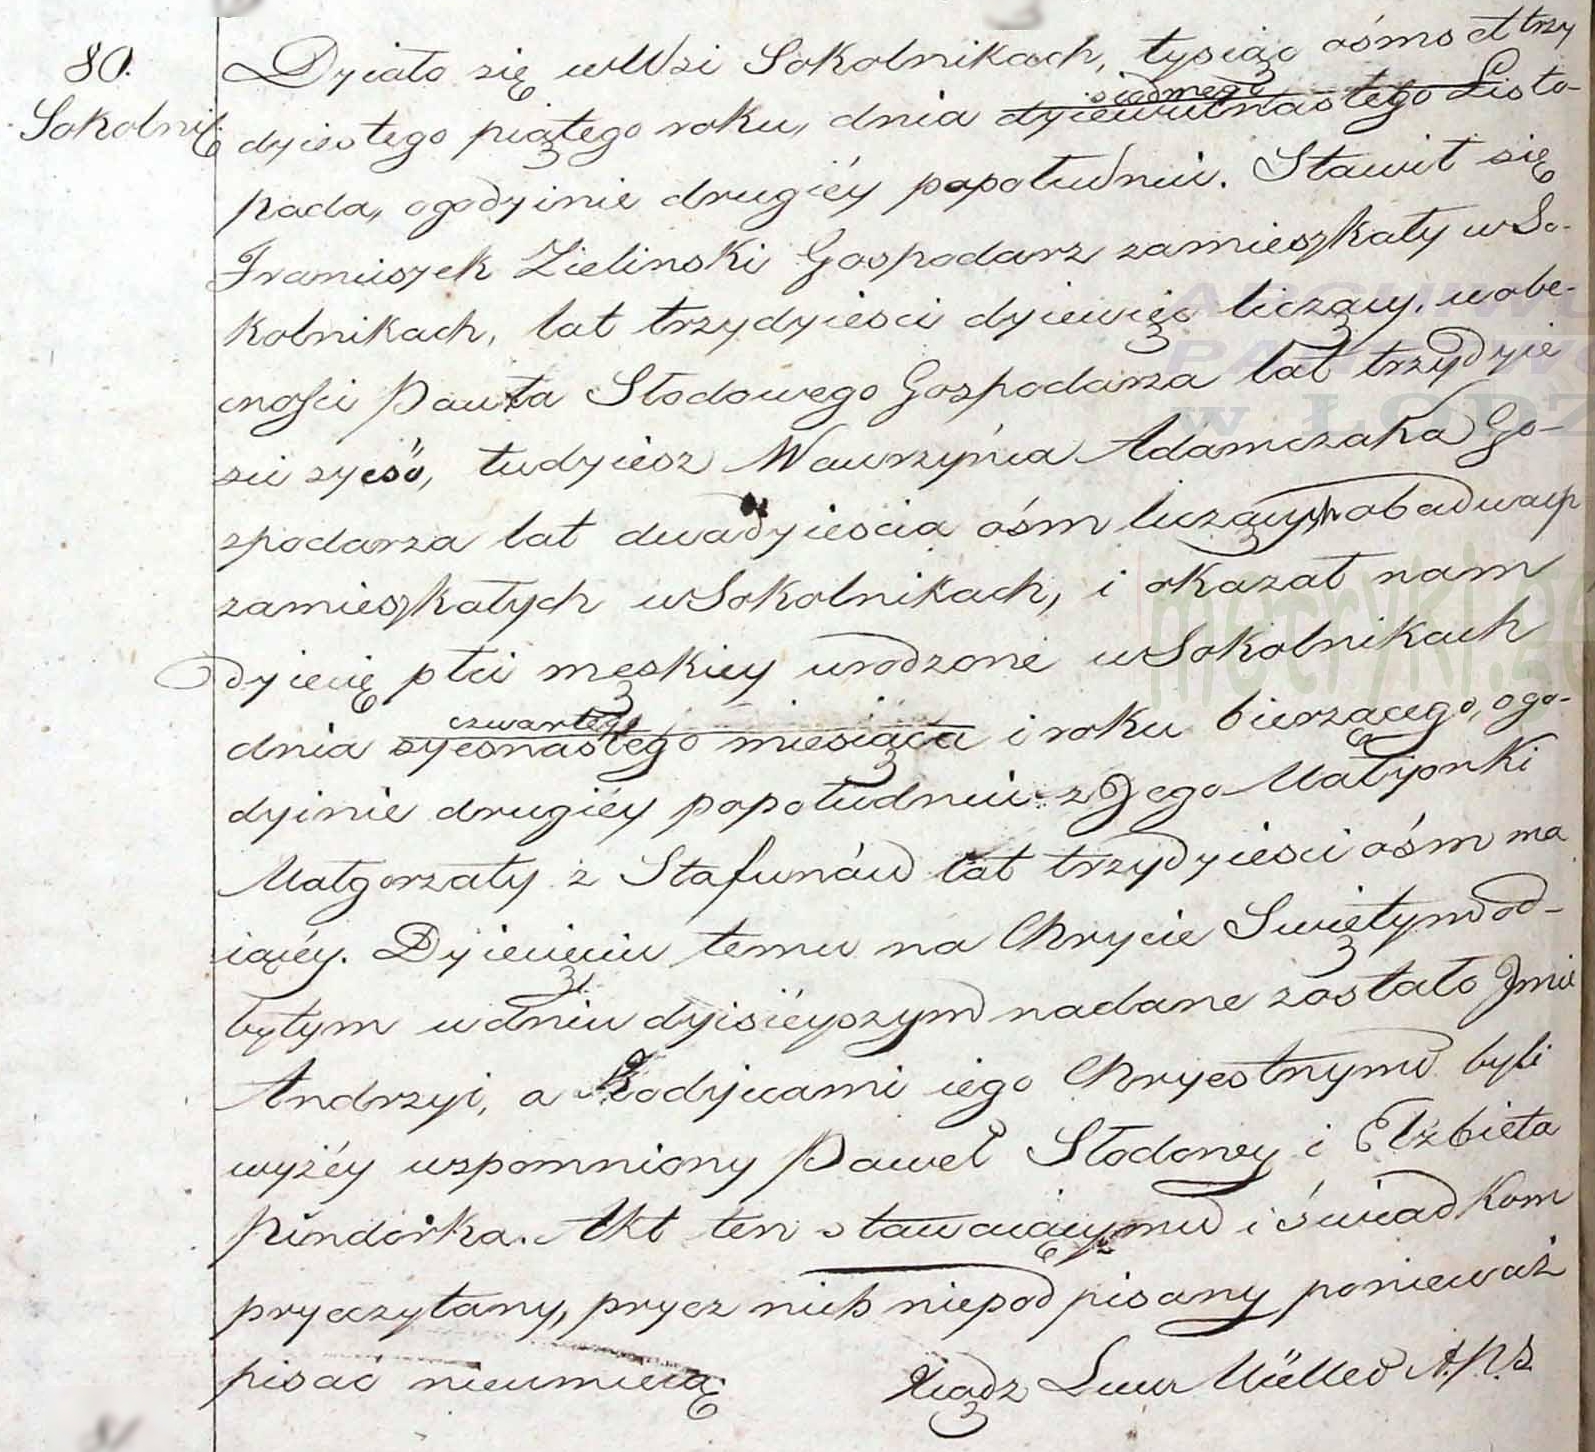 80.
Sokolniki
Działo się w Wsi Sokolnikach, tysiąc ośmset trzy
siódmego
dziestego piątego roku, dnia dziewiętnastego Listo-
pada, o godzinie drugiéy popołudniu. Stawił się
Franciszek Zielinski Gospodarz zamieszkały w So-
kolnikach, lat trzydzieści dziewięć liczący, w obe-
cności Pawła Słodowego Gospodarza lat trzydzie
ści sześć, tudziesz Wawrzyńca Adamczaka Go-
spodarza lat dwadzieścia ośm liczących obadwuch
zamieszkałych w Sokolnikach, i okazał nam
Dziecię płci męskiey urodzone w Sokolnikach
czwartego
dnia szesnastego miesiąca i roku bierzącego, o go-
dzinie drugiéy popołudniu z Jego Małżonki
Małgorzaty z Stafunów lat trzydzieści ośm ma
iącéy. Dziecięciu temu na Chrzcie Świętym od-
bytym w dniu dzisiéyszym nadane zostało Jmie
Andrzyi, a Rodzicami iego Chrzestnymi byli
wyżéy wspomniony Paweł Słodowy i Elżbieta
Pindorka. Akt ten stawaiącymu i świadkom
przeczytany, przez nich niepodpisany ponieważ
pisać nieumieią
Xiądz Müller A.P.S.
ARCHIWU
PAŃSTWO
w ŁODZ
metryki.ge